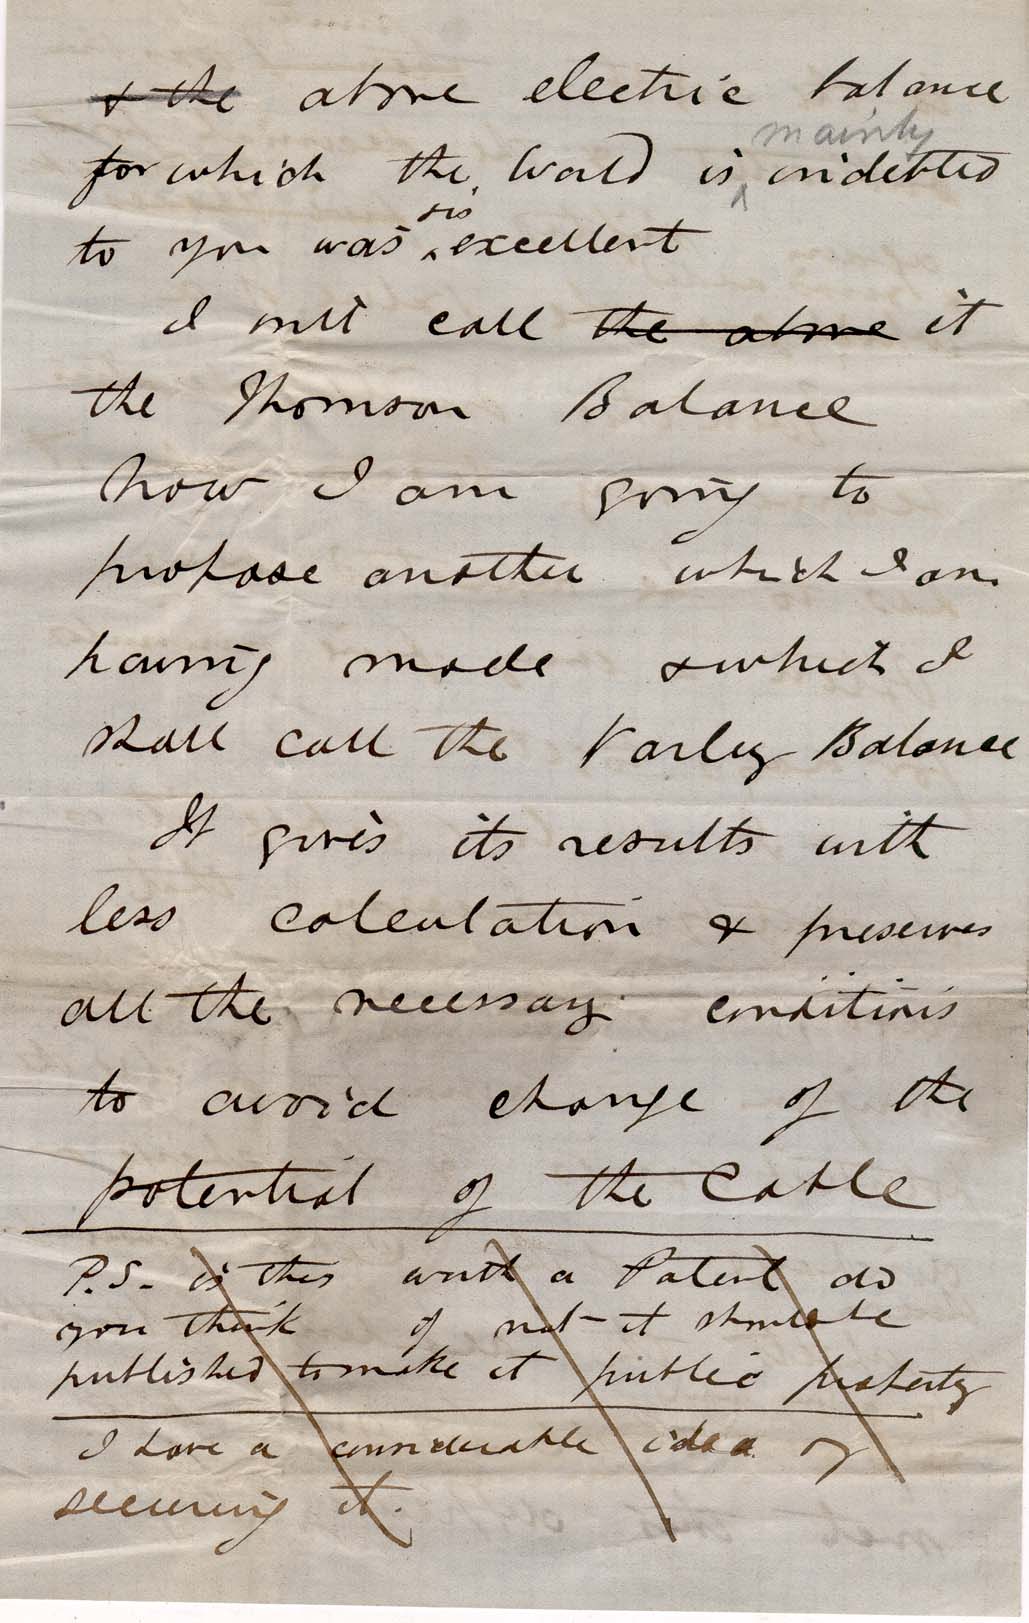 & the above electric balance
mainly
for which the World is indebted
so
to you was excellent
I will call the above it
the Thomson Balance
Now I am going to
propose another which I am
having made & which I
shall call the Varley Balance
It gives its results with
less calculation & preserves
all the necessary conditions
to avoid change of the
potential of the Cable
P.S. - is this worth a Patent do
you think if not - it should be
published to make it public property
I have a considerable idea of
securing it.